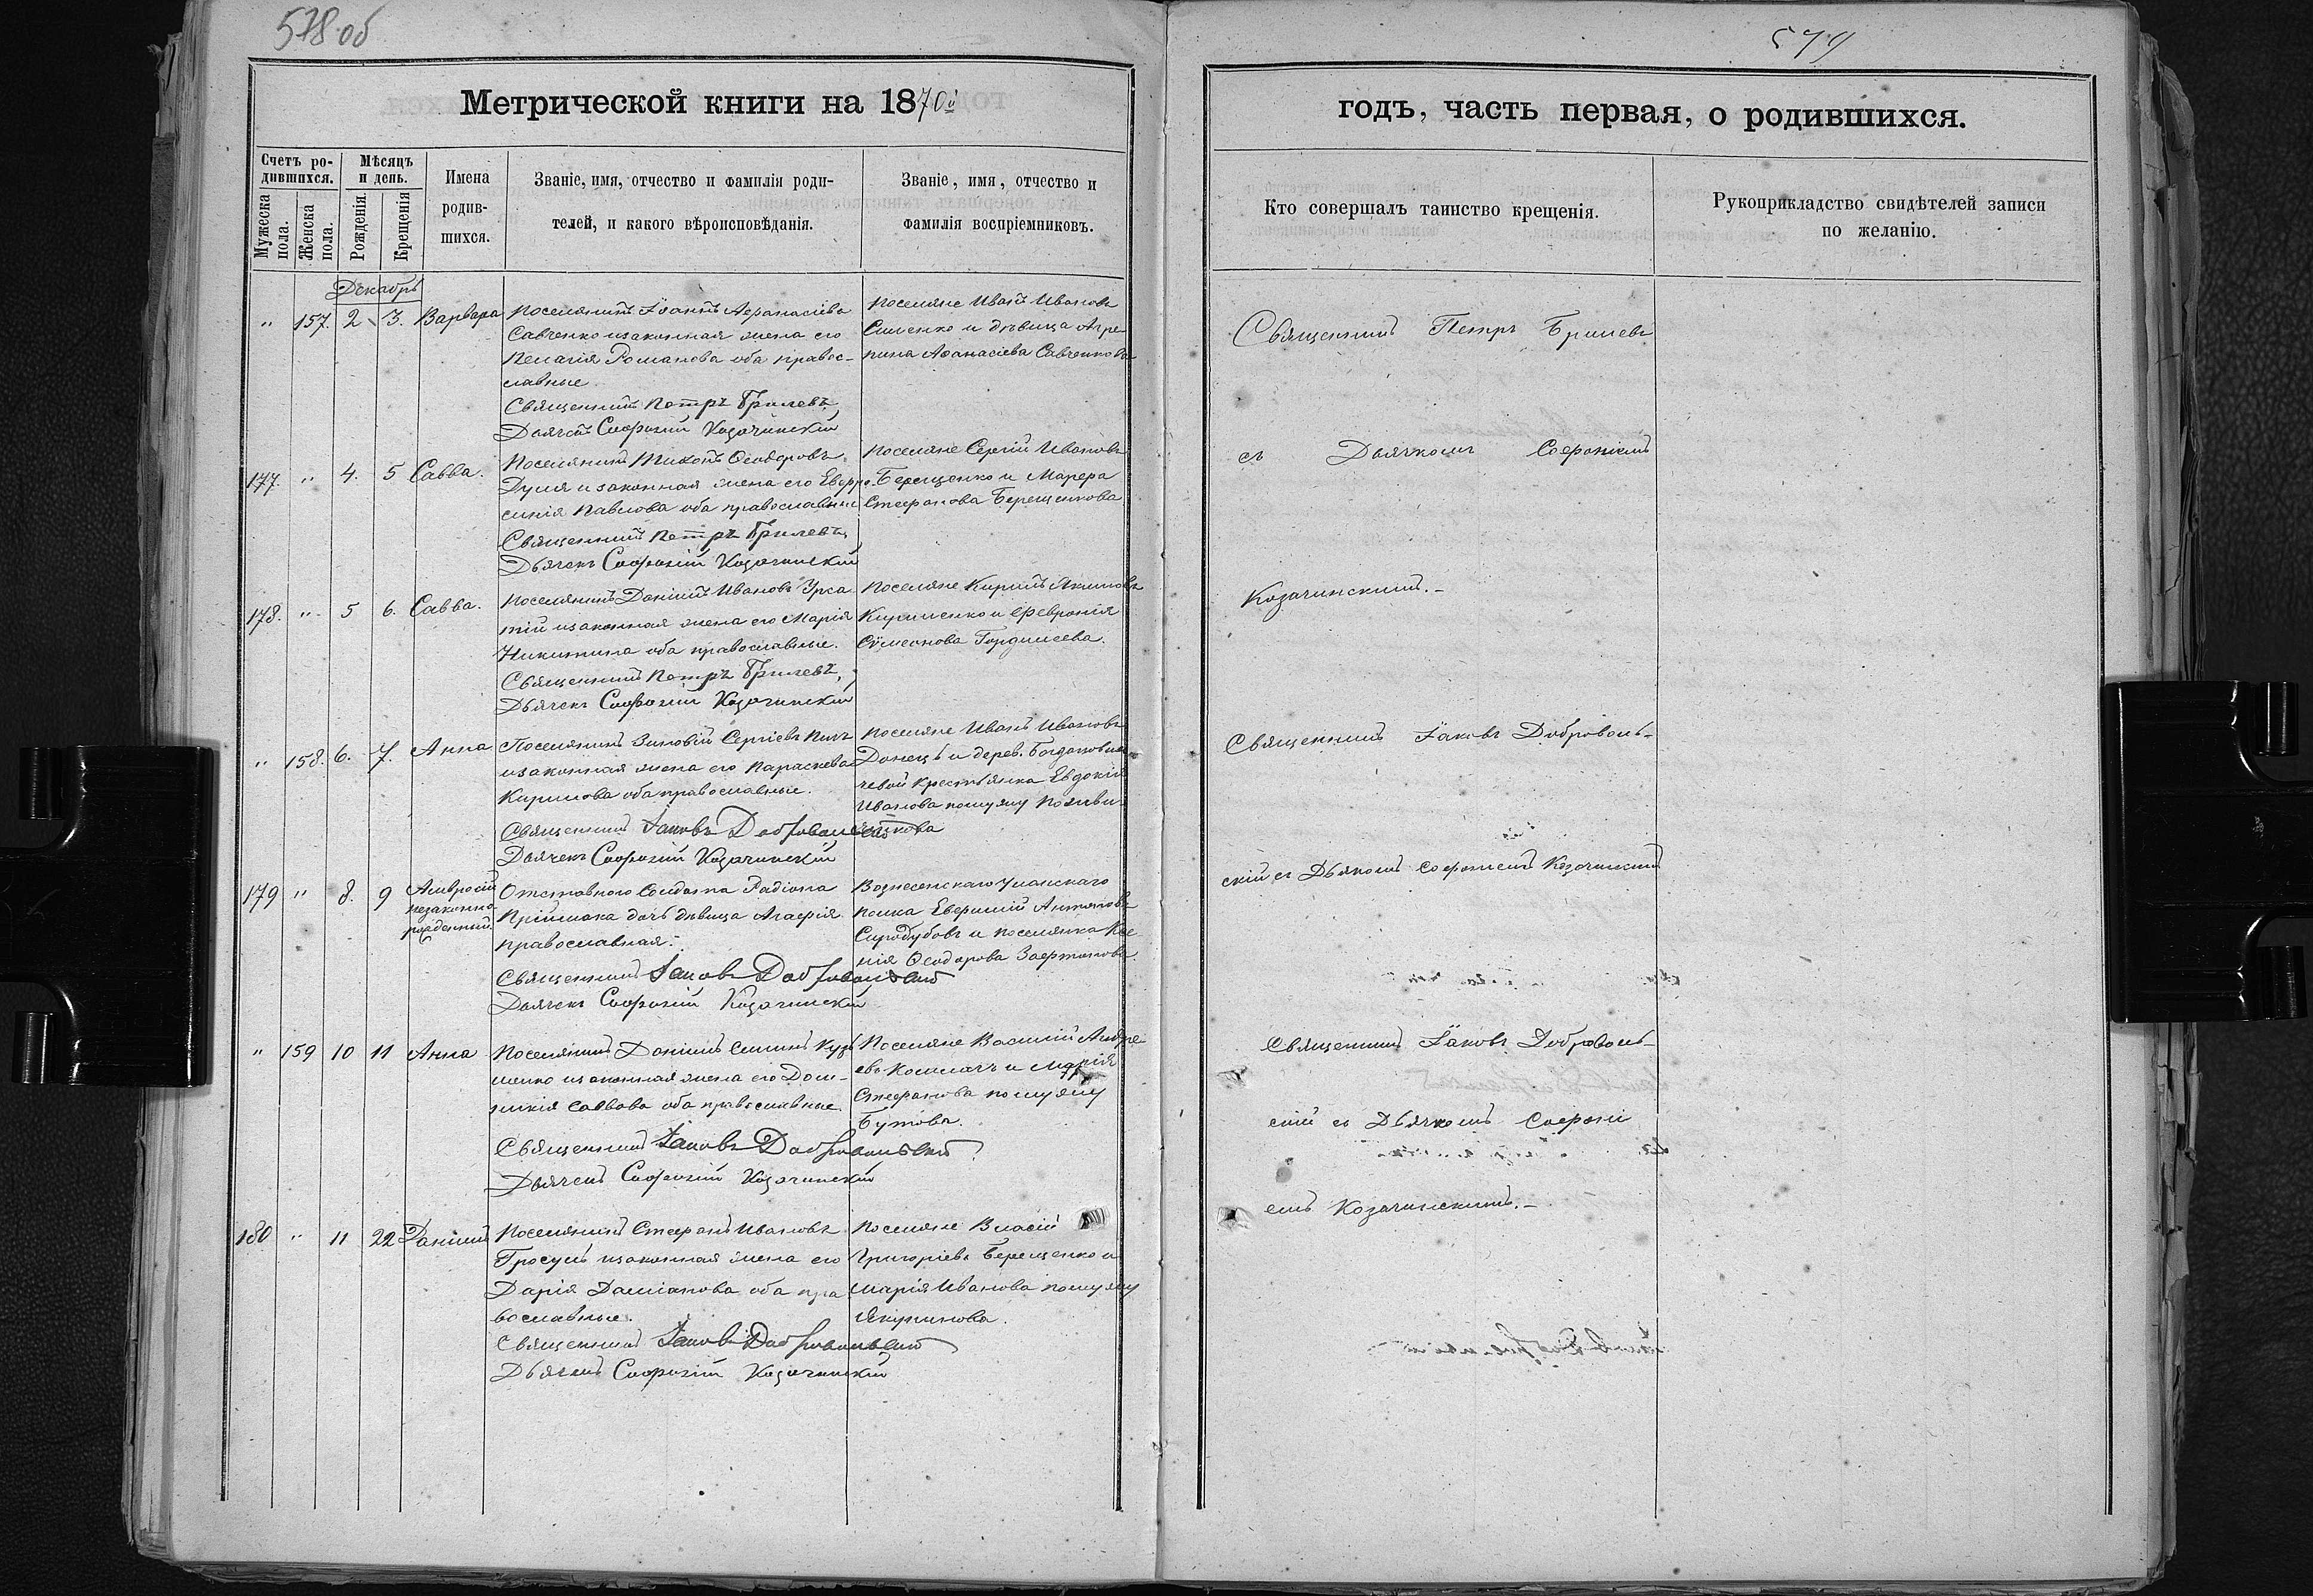 578 об
579
Метрической книги на 1870й
годъ, часть первая, о родившихся.
Счетъ родившихся.
Мѣсяцъ и день.
Имена родившихся.
Званіе, имя, отчество и фамилія родителей, и какого вѣроисповѣданія.
Званіе, имя, отчество и фамилія воспріемниковъ.
Мужеска пола.
Женска пола.
Рожденія
Крещенія
Кто совершалъ таинство крещенія.
Рукоприкладство свидѣтелей записи
по желанію.
Декабрь
" 157. 2 3. Варвара
Поселянинъ Іоаннъ Аѳанасіевъ
Савченко и законная жена его
Пелагія Романова оба правос-
лавные
Священникъ Петръ Брилевъ
Дьячекъ Софроній Козачинскій
Поселяне Иванъ Ивановъ
и дѣвица Агре
пина Аѳанасіева Савченкова
Священникъ Петръ Брилевъ
177 " 4. 5 Савва.
Поселянинъ Тихонъ Ѳеодоровъ
Дуля и законная жена его Евфро-
синія Павлова оба православные
Священникъ Петръ Брилевъ
Дьячекъ Софроній Козачинскій
Поселяне Сергій Ивановъ
Берещенко и Марфа
Стефанова Берещенкова
съ Дьячкомъ Софроніемъ
178. " 5 6. Савва.
Поселянинъ Даніилъ Ивановъ Урса
тій и законная жена его Марія
Никитина оба православные.
Священникъ Петръ Брилевъ,
Дьячекъ Софроній Козачинскій
Поселяне Кирилъ Якимовъ
Кириленко и Февронія
Сѵмеонова Гордиеева.
Козачинскимъ.-
" 158. 6. 7. Анна
Поселянинъ Зиновій Сергіевъ
и законная жена его Параскева
Кирилова оба православные.
Священникъ Іаковъ Добровольскій
Дьячекъ Софроній Козачинскій
Поселяне Иванъ Ивановъ
Донецъ и дерев.
чевой крестьянка Евдокія
Иванова по мужу
Священникъ Іаковъ Доброволь-
скій съ Дьякомъ Софроніемъ Козачинскимъ
179 " 8. 9 Амвросій
незаконно-
рожденный.
Отставного Солдата Радіона
Пріймака дочь дѣвица Агафія
православная.-
Священникъ Іаковъ Добровольскій
Дьячекъ Софроній Козачинскій
Вознесенскаго Уланскаго
полка Евфимій Антоновъ
и поселянка Ксе
нія Ѳеодорова
" 159 10 11 Анна
Поселянинъ Даніилъ Куз
менко и законная жена его Дом-
никія Саввова оба православные
Священникъ Іаковъ Добровольскій
Дьячекъ Софроній Козачинскій
Поселяне Василій Андре
евъ и Марія
Стефанова по мужу
Бутова.
Священникъ Іаковъ Доброволь-
скій съ Дьячкомъ Софрони
емъ Козачинскимъ.-
180 " 11 22 Даніилъ
Поселянинъ Стефанъ Ивановъ
Гросулъ и законная жена его
Дарія Даміанова оба пра
вославные.
Священникъ Іаковъ Добровольскій
Дьячекъ Софроній Козачинскій
Поселяне Власій
Григоріевъ Берещенко и
Марія Иванова по мужу